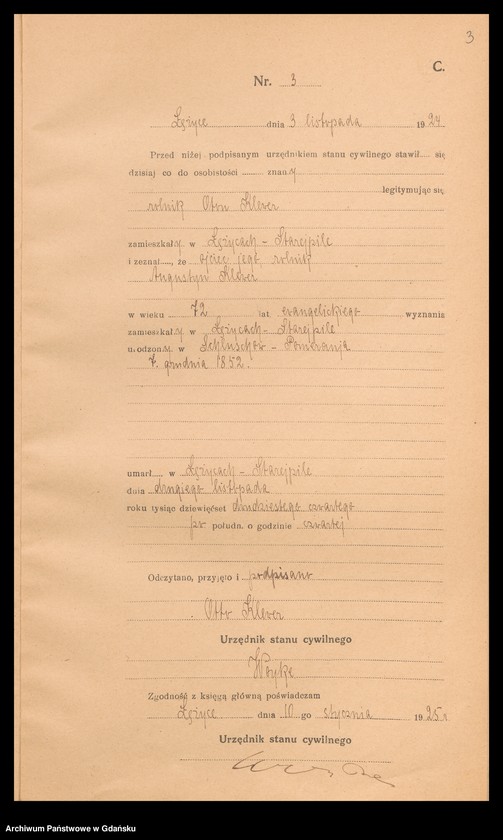 3
C.
Nr. 3
Łężyce dnia 3 listopada 1924
Przed niżej podpisanym urzędnikiem stanu cywilnego stawił się
dzisiaj co do osobistości znany
legitymując się
rolnik Otto Klever
zamieszkały w Łężycach - Starejpile
i zeznał, że ojciec jego rolnik
Augustyn Klever
w wieku 72 lat evangelickiego wyznania
zamieszkały w Łężycach - Starejpile
urodzony w Schluschow - Pomeranja
7. grudnia 1852.
umarł w Łężycach - Starejpile
dnia drugiego listopada
roku tysiąc dziewięćset dwudziestego czwartego
po połudn. o godzinie czwartej
Odczytano, przyjęto i podpisano
Otto Klever
Urzędnik stanu cywilnego
Woyke
Zgodność z księgą główną poświadczam
Łężyce dnia 10 go stycznia 1925 r
Urzędnik stanu cywilnego
Archiwum Państwowe w Gdańsku